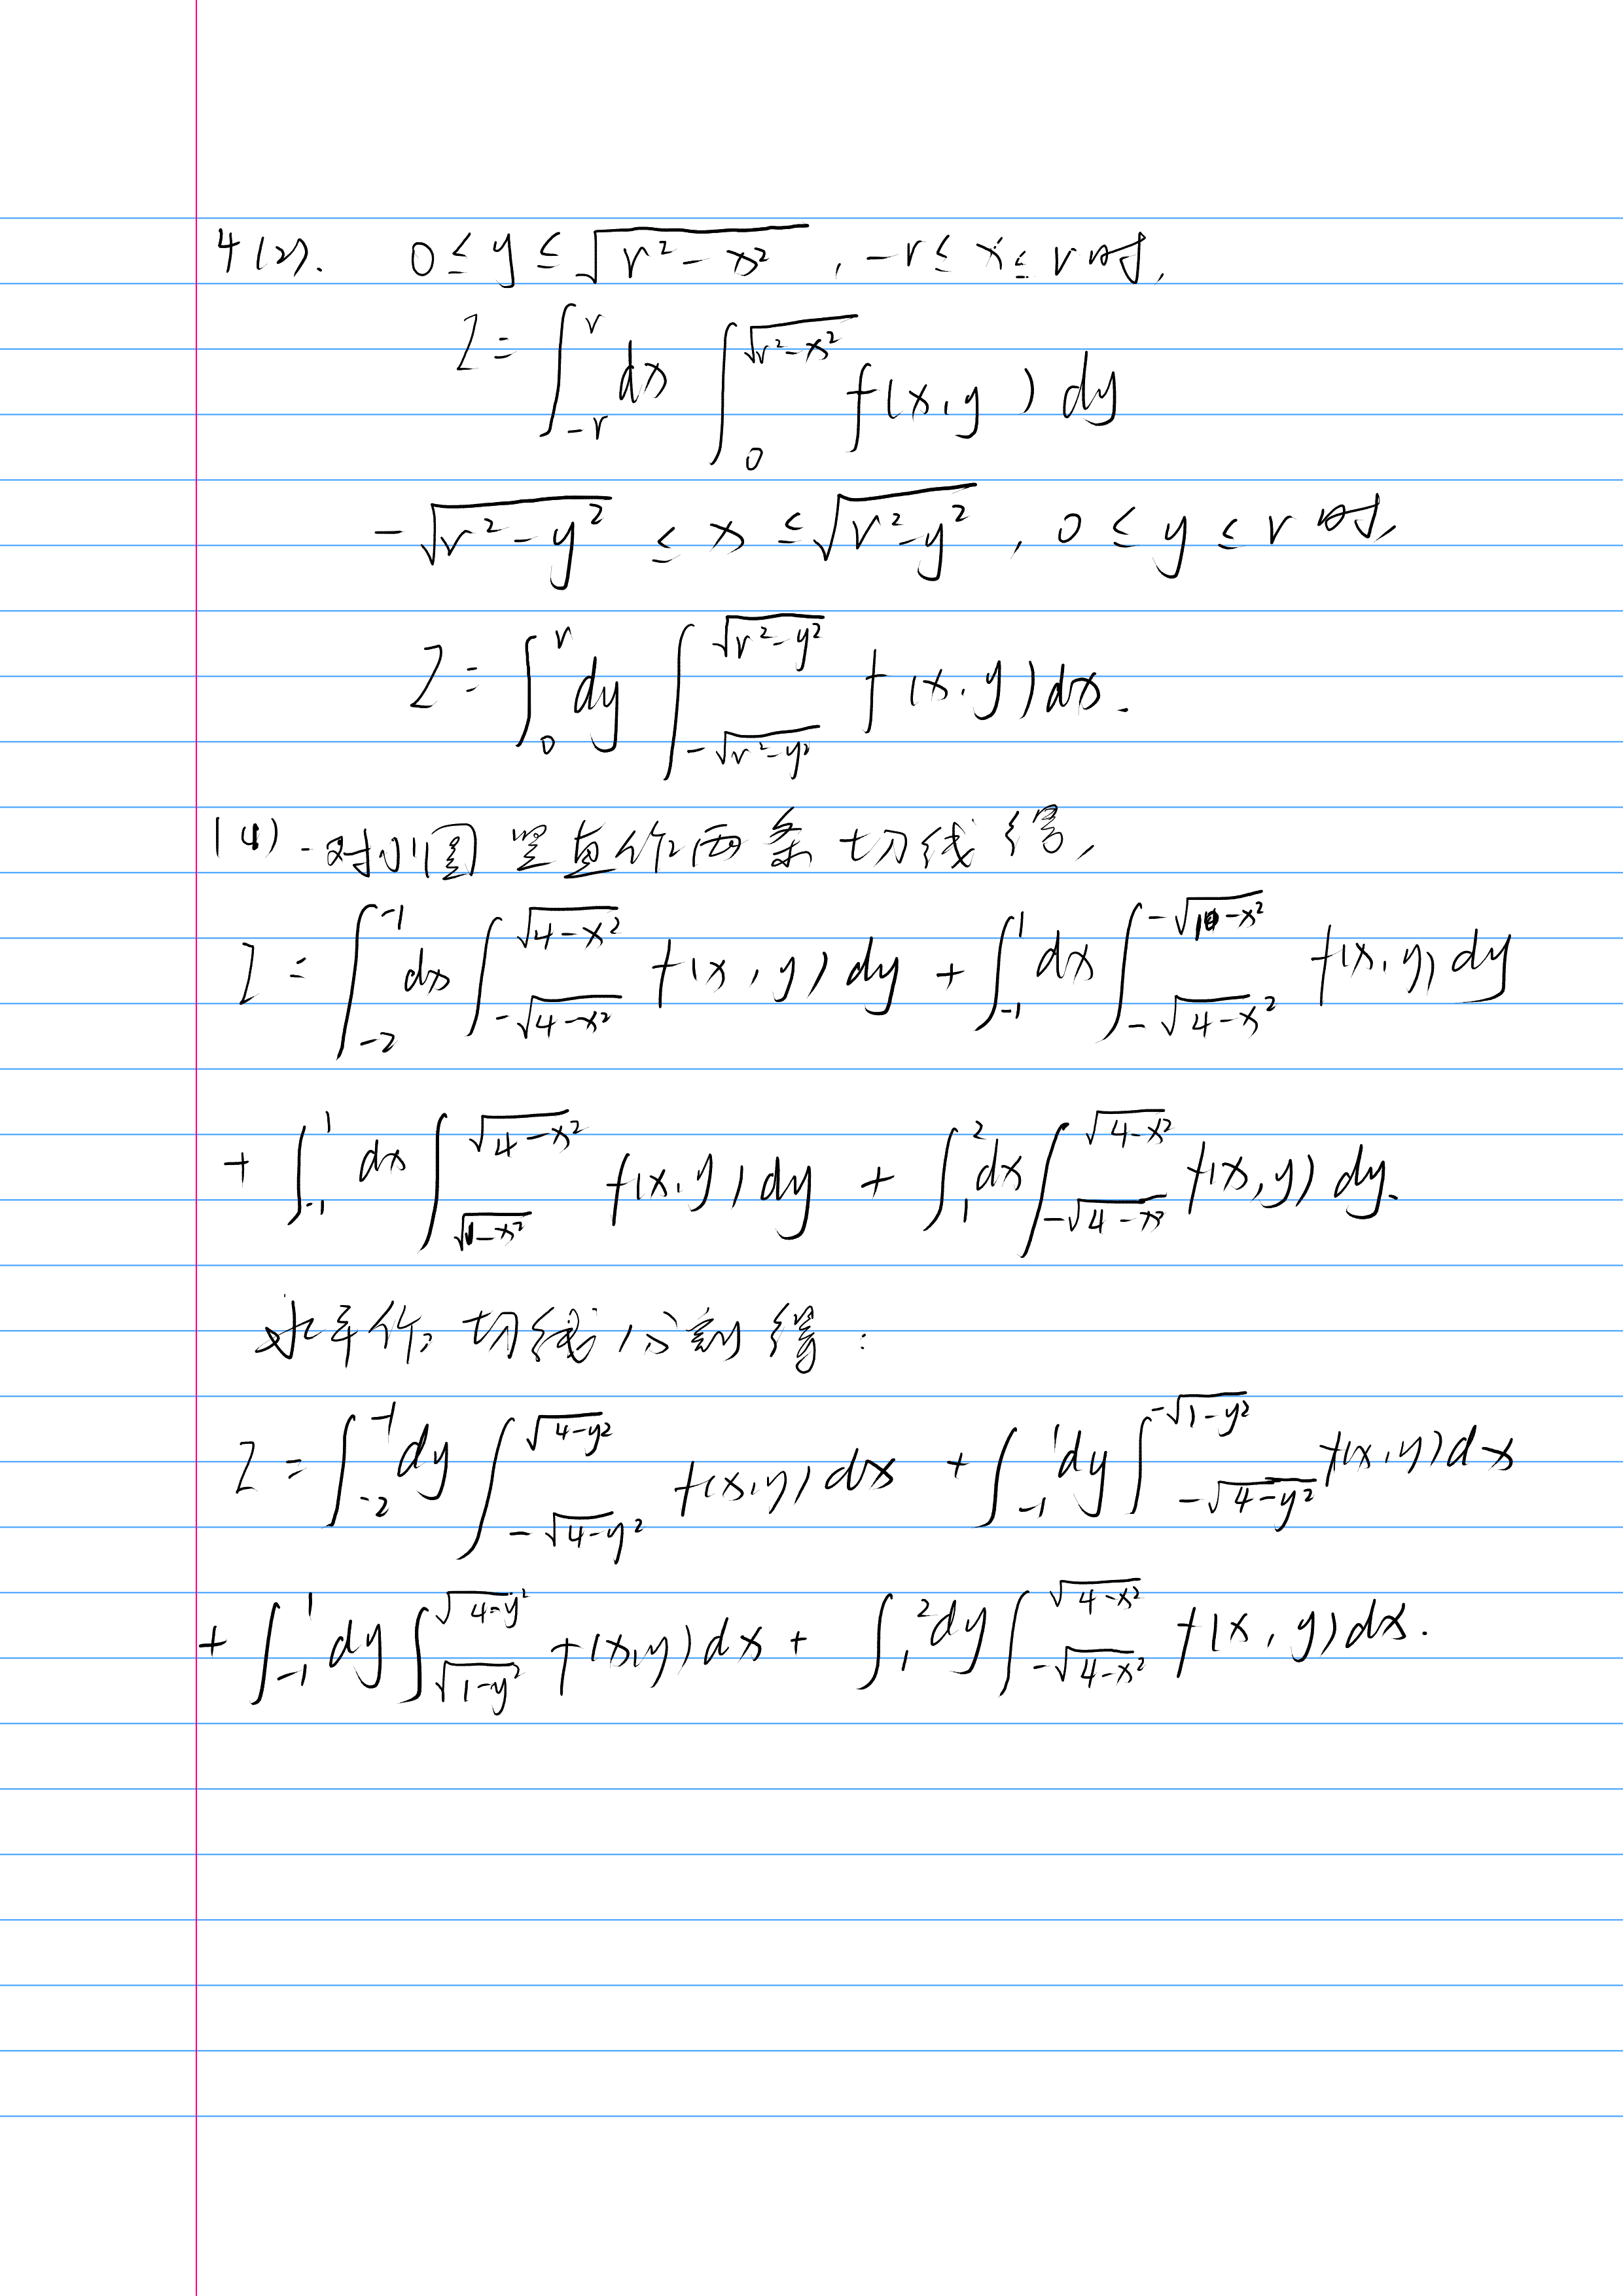 4(2). 0 ≤ y ≤ √(r²-x²), -r ≤ x ≤ r 时,
I = ∫_{-r}^{r} dx ∫_{0}^{√(r²-x²)} f(x,y) dy
-√(r²-y²) ≤ x ≤ √(r²-y²), 0 ≤ y ≤ r 时,
I = ∫_{0}^{r} dy ∫_{-√(r²-y²)}^{√(r²-y²)} f(x,y) dx.
(4). 对小圆竖直作两条切线得,
I = ∫_{-2}^{-1} dx ∫_{-√(4-x²)}^{√(4-x²)} f(x,y) dy + ∫_{-1}^{1} dx ∫_{-√(4-x²)}^{-√(1-x²)} f(x,y) dy
+ ∫_{-1}^{1} dx ∫_{√(1-x²)}^{√(4-x²)} f(x,y) dy + ∫_{1}^{2} dx ∫_{-√(4-x²)}^{√(4-x²)} f(x,y) dy.
水平作切线分割得:
I = ∫_{-2}^{-1} dy ∫_{-√(4-y²)}^{√(4-y²)} f(x,y) dx + ∫_{-1}^{1} dy ∫_{-√(4-y²)}^{-√(1-y²)} f(x,y) dx
+ ∫_{-1}^{1} dy ∫_{√(1-y²)}^{√(4-y²)} f(x,y) dx + ∫_{1}^{2} dy ∫_{-√(4-x²)}^{√(4-x²)} f(x,y) dx.